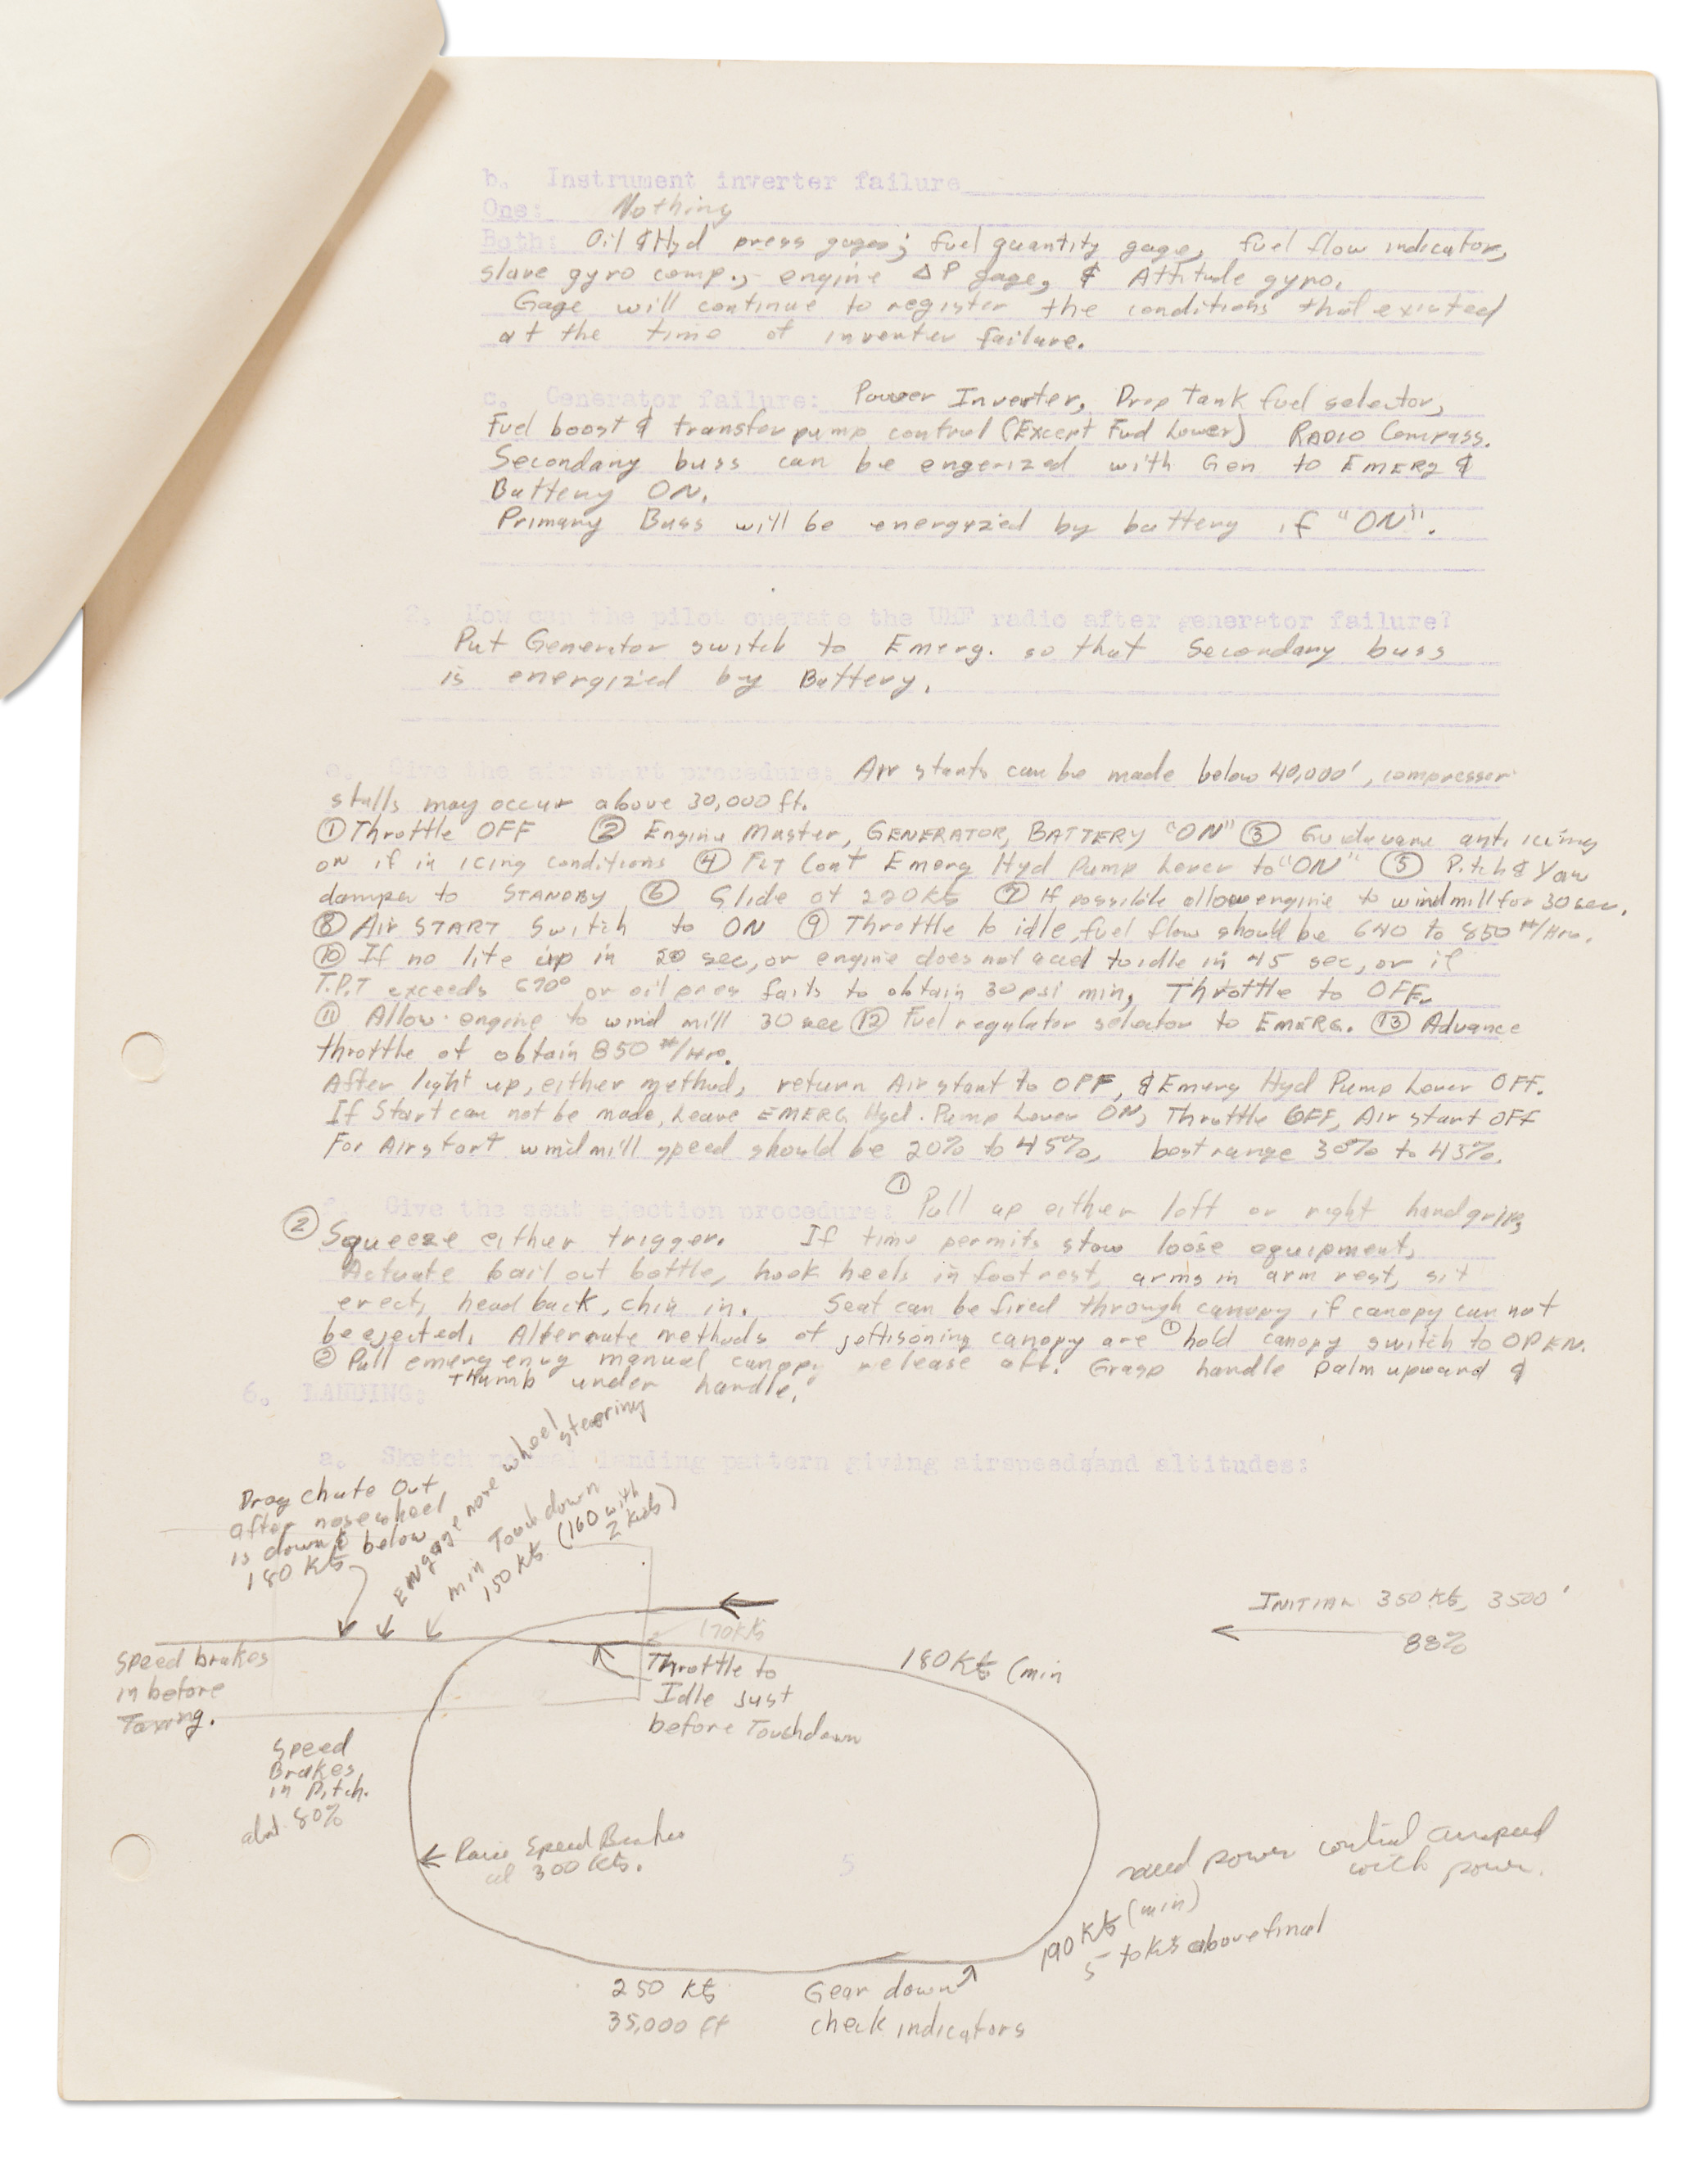 b. Instrument inverter failure
One: Nothing
Both: Oil & Hyd press gages; fuel quantity gage, fuel flow indicator,
slave gyro comp., engine ΔP gage, & Attitude gyro.
Gage will continue to register the conditions that existed
at the time of inverter failure.
c. Generator failure: Power Inverter, Drop Tank fuel selector,
Fuel boost & transfer pump control (Except Fwd Lower) RADIO Compass.
Secondary buss can be engerized with Gen to EMERG &
Battery ON.
Primary Buss will be energized by battery if "ON".
2. How can the pilot operate the UHF radio after generator failure?
Put Generator switch to Emerg. so that Secondary buss
is energized by Battery.
e. Give the air start procedure: Air starts can be made below 40,000', compresser
stalls may occur above 30,000 ft.
① Throttle OFF ② Engine Master, GENERATOR, BATTERY "ON" ③ Guidevane anti icing
on if in icing conditions ④ Flt Cont Emerg Hyd Pump Lever to "ON" ⑤ Pitch & Yaw
damper to STANDBY ⑥ Glide at 220 Kts ⑦ If possible allow engine to windmill for 30 sec.
⑧ Air START Switch to ON ⑨ Throttle to idle, fuel flow should be 640 to 850 #/Hr.
⑩ If no lite up in 20 sec, or engine does not accel to idle in 45 sec, or if
T.P.T exceeds 670° or oil pres fails to obtain 30 psi min, Throttle to OFF.
⑪ Allow engine to wind mill 30 sec ⑫ Fuel regulator selector to EMERG. ⑬ Advance
throttle ot obtain 850 #/Hr.
After light up, either method, return Air start to OFF, & Emerg Hyd Pump Lever OFF.
If Start can not be made, Leave EMERG Hyd. Pump Lever ON, Throttle OFF, Air start OFF
For Airstart windmill speed should be 20% to 45%, best range 30% to 43%.
f. Give the seat ejection procedure: ① Pull up either left or right handgrip,
② Squeeze either trigger. If time permits stow loose equipment,
Actuate bail out bottle, hook heels in foot rest, arms in arm rest, sit
erect, head back, chin in. Seat can be fired through canopy if canopy can not
be ejected. Alternate methods of jettisoning canopy are ① hold canopy switch to OPEN.
② Pull emergency manual canopy release aft. Grasp handle palm upward &
thumb under handle.
6. LANDING:
a. Sketch normal landing pattern giving airspeeds and altitudes:
Drag chute Out
after nosewheel
is down & below
180 Kts
Engage nose wheel
steering
min Touchdown
150 Kts (160 with
2 kids)
INITIAL 350 Kts, 3500'
88%
170 Kts
180 Kts (min
Speed brakes
in before
Taxing.
Throttle to
Idle Just
before Touchdown
Speed
Brakes
in Pitch.
abt. 80%
Raise Speed Brakes
at 300 Kts.
5
need power control airspeed
with power.
190 Kts (min)
5 to Kts above final
250 Kts
35,000 ft
Gear down
check indicators